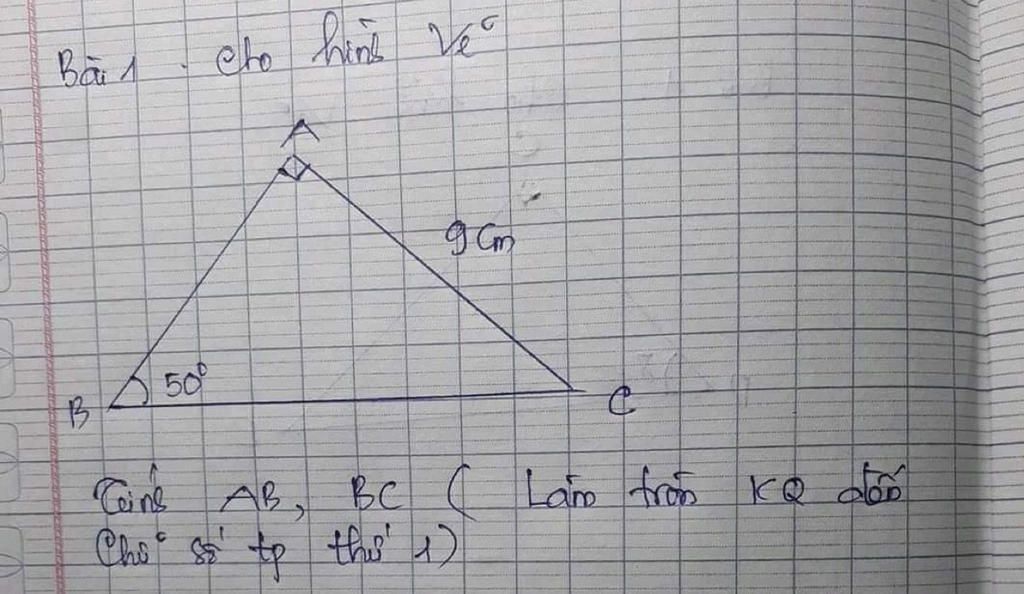 Bài 1. Cho hình vẽ
A
9 cm
50°
B
C
Tính AB, BC ( Làm tròn KQ đến
Chữ số tp thứ 1)